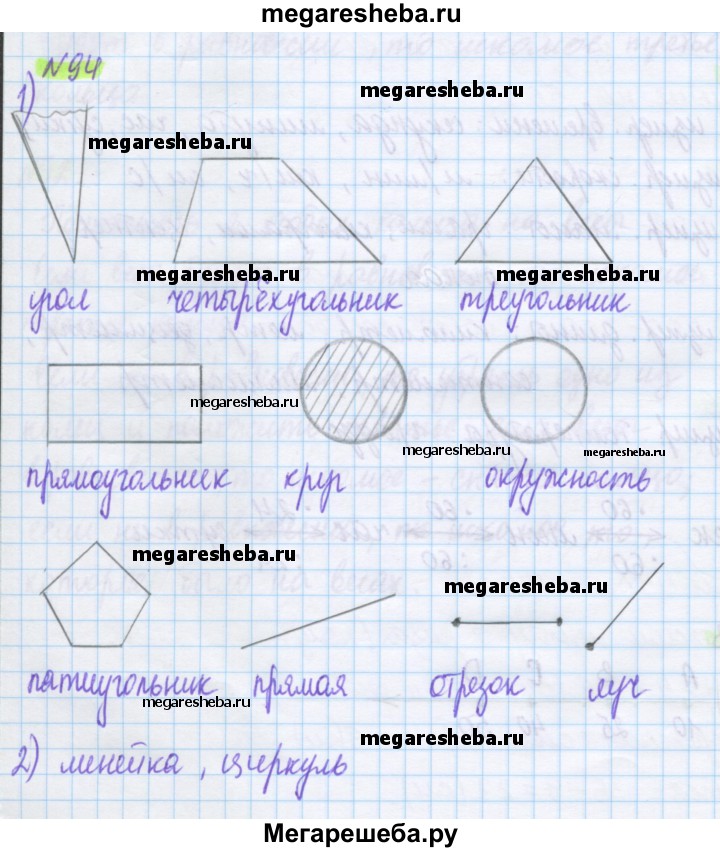 megaresheba.ru
N94
1)
megaresheba.ru
megaresheba.ru
megaresheba.ru
megaresheba.ru
угол четырёхугольник треугольник
megaresheba.ru
megaresheba.ru
megaresheba.ru
прямоугольник круг окружность
megaresheba.ru
megaresheba.ru
пятиугольник прямая отрезок луч
megaresheba.ru
megaresheba.ru
2) линейка, циркуль
Мегарешеба.ру